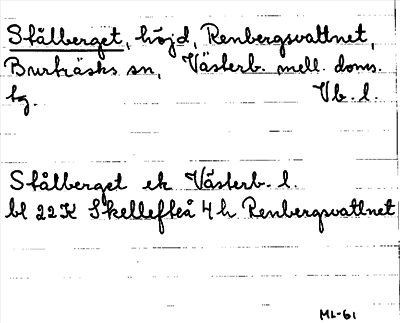 Stålberget, höjd, Renbergsvattnet,
Burträsks sn, Västerb. mell. doms.
tg. Vb. l.
Stålberget ek Västerb. l.
bl 22K Skellefteå 4h Renbergsvattnet
ML-61